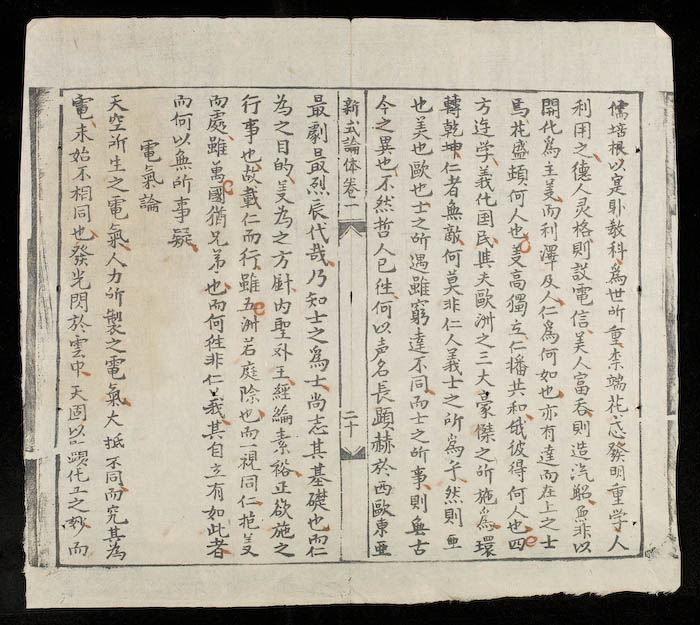 儒培根以寔卧教科為世所重柰端花忒發明重学人
利用之德人灵格則設電信美人富吞則造汽船無非以
開化為主義而利澤及人仁為何如也亦有達而在上之士
馬花盛頓何人也義高獨立仁播共和俄彼得何人也四
方遊学義代国民其夫歐洲之三大豪傑之所施為環
轉乾坤仁者無敵何莫非仁人義士之所為乎然則亜
也美也歐也士之所遇雖窮達不同而士之所事則無古
今之異也不然哲人已徃何以声名長顕赫於西歐東亜
新式論体卷一
二十
最劇最烈辰代哉乃知士之為士尚志其基礎也而仁
為之目的義為之方針内聖外王經綸素裕正欲施之
行事也故載仁而行雖五洲若庭除也而一視同仁抱義
而處雖萬國猶兄弟也而何徃非仁義其自立有如此者
而何以無所事疑
電氣論
天空所生之電氣人力所製之電氣大抵不同而究其為
電未始不相同也發光閃於雲中天固以顕化工之妙而